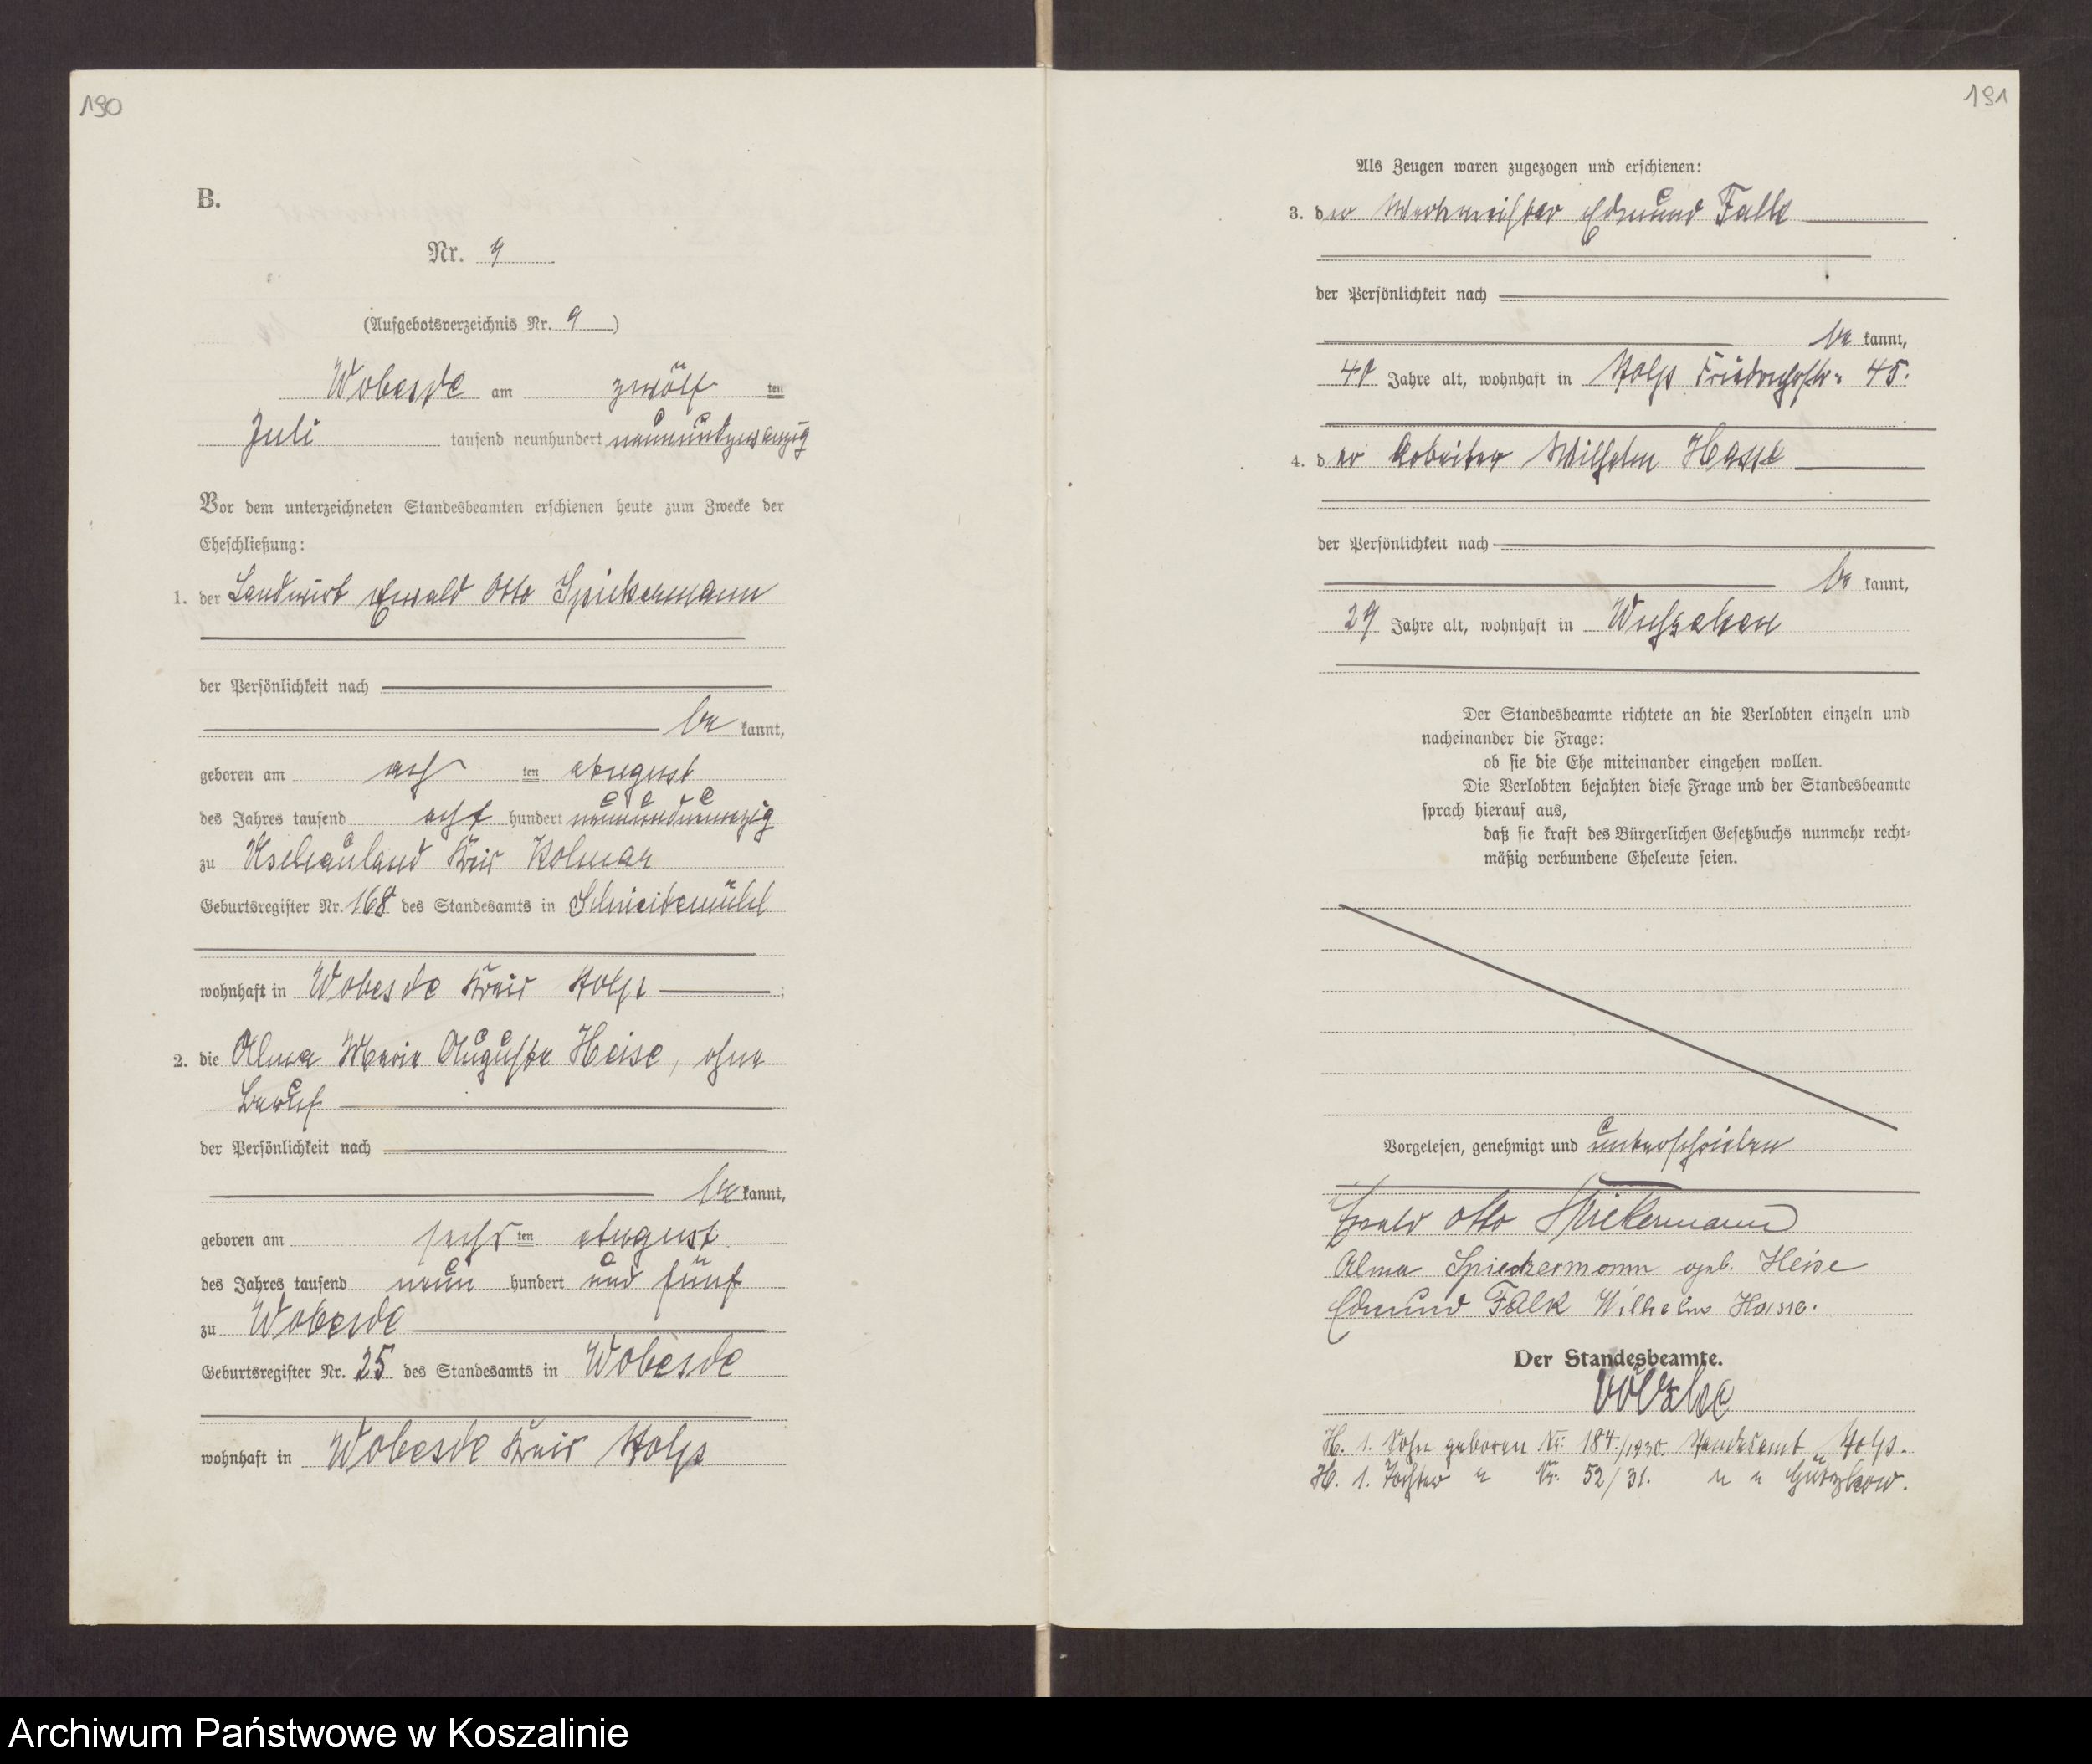 190
B.
Nr. 9
(Aufgebotsverzeichnis Nr. 9)
Wobesde am zwölf ten
Juli tausend neunhundert neunundzwanzig
Vor dem unterzeichneten Standesbeamten erschienen heute zum Zwecke der
Eheschließung:
1. der Landwirt Ewald Otto Spickermann
der Persönlichkeit nach
be kannt,
geboren am ach ten August
des Jahres tausend acht hundert neunundneunzig
zu Uschauland Kreis Kolmar
Geburtsregister Nr. 168 des Standesamts in Schneidemühl
wohnhaft in Wobesde Kreis Stolp ;
2. die Alma Marie Auguste Heise, ohne
Beruf
der Persönlichkeit nach
be kannt,
geboren am sechs ten August
des Jahres tausend neun hundert und fünf
zu Wobesde
Geburtsregister Nr. 25 des Standesamts in Wobesde
wohnhaft in Wobesde Kreis Stolp
191
Als Zeugen waren zugezogen und erschienen:
3. der Werkmeister Edmund Falk
der Persönlichkeit nach
be kannt,
40 Jahre alt, wohnhaft in Stolp Friedrichstr. 45.
4. der Arbeiter Wilhelm Hasse
der Persönlichkeit nach
be kannt,
29 Jahre alt, wohnhaft in
Der Standesbeamte richtete an die Verlobten einzeln und
nacheinander die Frage:
ob sie die Ehe miteinander eingehen wollen.
Die Verlobten bejahten diese Frage und der Standesbeamte
sprach hierauf aus,
daß sie kraft des Bürgerlichen Gesetzbuchs nunmehr recht-
mäßig verbundene Eheleute seien.
Vorgelesen, genehmigt und unterschrieben
Ewald Otto Spickermann
Alma Spieckermann geb. Heise
Edmund Falk Wilhelm Hasse.
Der Standesbeamte.
Völzke
H. 1. Sohn geboren Nr. 184/1930. Standesamt Stolp.
H. 1. Tochter " Nr. 52/31. " " Gützkow.
Archiwum Państwowe w Koszalinie